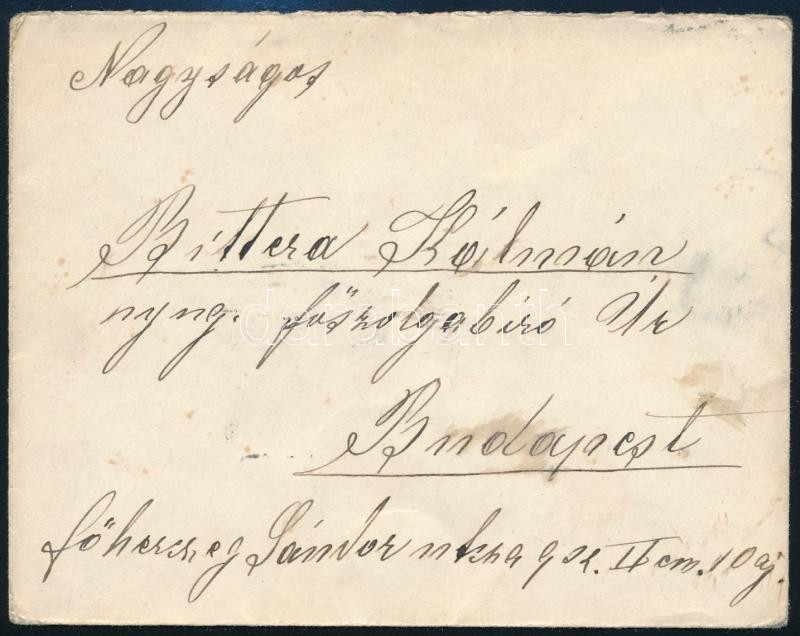 Nagyságos
Bittera Kálmán
nyug. főszolgabiró Úr
Budapest
főherczeg Sándor utcza 9 sz. II em. 10 aj.
darabanth.com